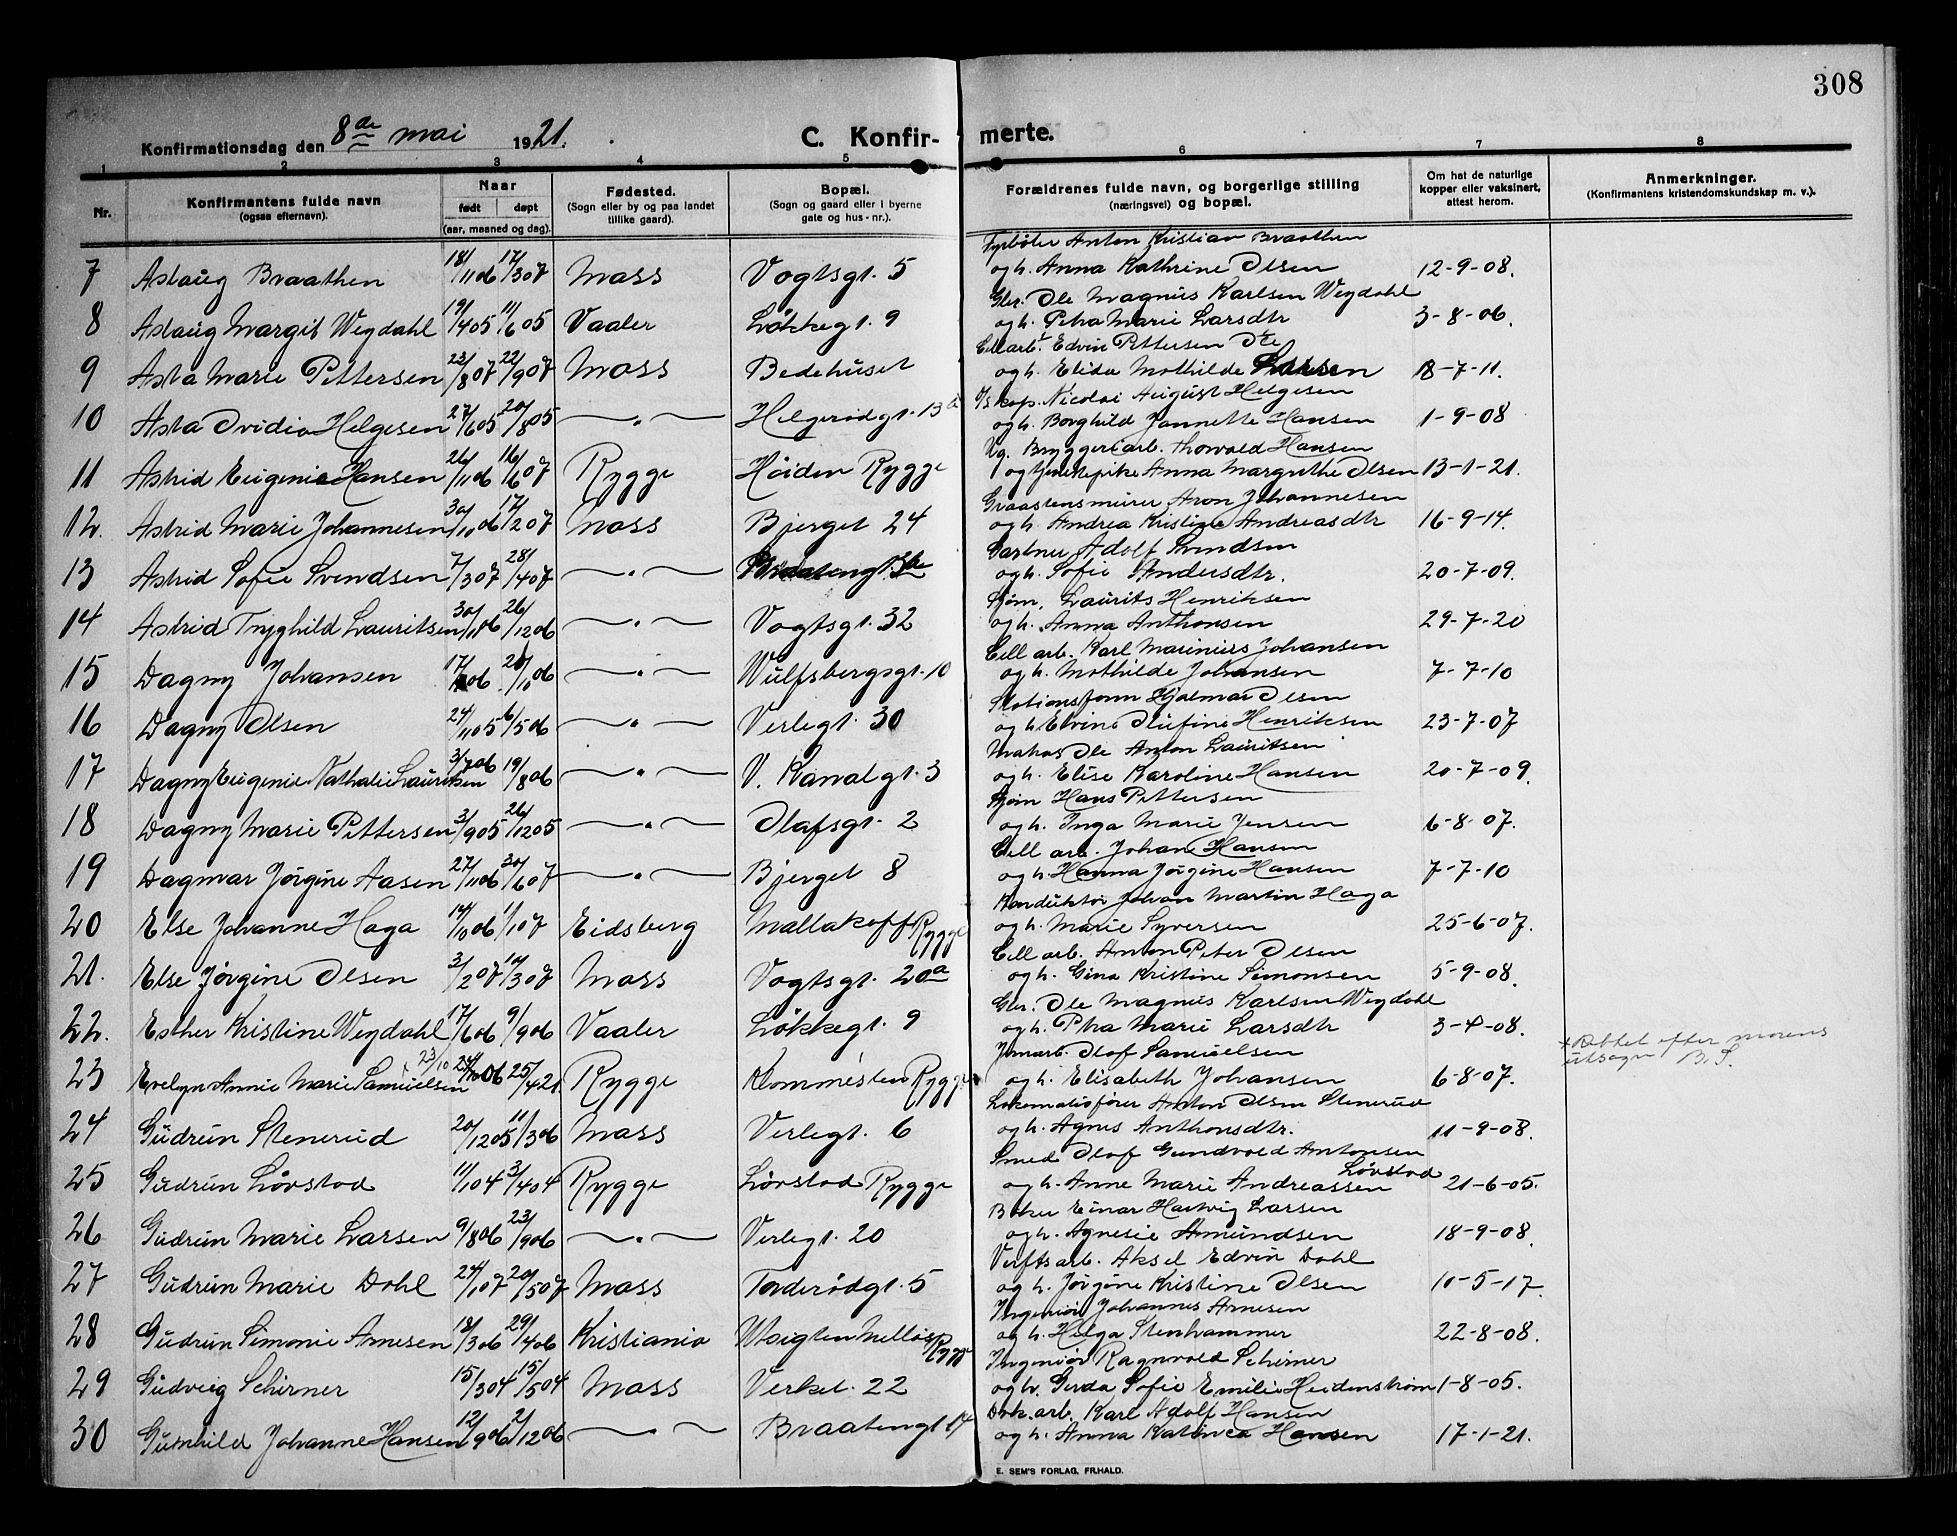 308
Konfirmationsdag den 8de mai 1921.
C. Konfirmerte.
1 2 3 4 5 6 7 8
Nr. Konfirmantens fulde navn (ogsaa efternavn). Naar født døpt (aar, maaned og dag). Fødested. (Sogn eller by og paa landet tillike gaard). Bopæl. (Sogn og gaard eller i byerne gate og hus-nr.). Forældrenes fulde navn, og borgerlige stilling (næringsvei) og bopæl. Om hat de naturlige kopper eller vaksinert, attest herom. Anmerkninger. (Konfirmantens kristendomskundskap m. v.).
Fyrbøter Anton Kristian Braathen
7 Aslaug Braathen 18/11 06 17/3 07 Moss Vogtsgt. 5 og h. Anna Kathrine Olsen 12-9-08.
Gbr. Ole Magnus Karlsen Wegdahl
8 Aslaug Margit Wegdahl 19/4 05 11/6 05 Vaaler Løkkegt. 9 og h. Petra Marie Larsdtr 3-8-06.
Cell arb. Edvin Pettersen
9 Asta Marie Pettersen 23/8 07 22/9 07 Moss Bedehuset og h. Elida Mathilde Larsen 18-7-11.
S/s kap. Nicolai August Helgesen
10 Asta Ovidia Helgesen 27/6 05 20/8 05 —„— Helgerødgt. 13a og h. Borghild Jannette Hansen 1-9-08
Ug. Bryggeriarb. Thorvald Hansen
11 Astrid Eugenie Hansen 26/11 06 16/6 07 Rygge Høiden Rygge og tjenestepike Anna Margrethe Olsen 13-1-21.
Graastensmurer Aron Johannesen
12. Astrid Marie Johannesen 30/10 06 17/2 07 Moss Bjerget 24 og h. Andrea Kristine Andreasdtr 16-9-14.
Gartner Adolf Svendsen
13 Astrid Sofie Svendsen 7/3 07 28/4 07 —„— og h. Sofie Andersdtr. 20-7-09.
Sjøm. Laurits Henriksen
14 Astrid Tryghild Lauritsen 30/11 06 26/12 06 —„— Vogtsgt. 32 og h. Anna Anthonsen 29-7-20
Cell arb. Karl Marinius Johansen
15 Dagny Johansen —„— Wulfsbergsgt. 10 og h. Mathilde Johansen 7-7-10
Stationsform Hjalmar Olsen
16 Dagny Olsen 24/11 05 6/5 06 —„— Verlegt. 30 og h. Elvine Olufine Henriksen 23-7-07
Matros Ole Anton Lauritsen
17 Dagny Eugenie Nathalie Lauritsen 3/7 06 19/8 06 —„— V. Kanalgt. 3 og h. Elise Karoline Hansen 20-7-09.
Sjøm Hans Pettersen
18 Dagny Marie Pettersen 3/9 05 26/12 05 —„— Olafsgt. 2 og h. Inga Marie Jensen 6-8-07.
Cell arb. Johan Hansen
19 Dagmar Jørgine Aasen 27/11 06 30/6 07 —„— Bjerget 8 og h. Hanna Jørgine Hansen 7-7-10
Konduktør Johan Martin Haga
20 Else Johanne Haga 14/10 06 1/10 7 Eidsberg Mallakoff Rygge og h. Marie Syversen 25-6-07.
Cell arb. Anton Peter Olsen
21. Else Jørgine Olsen 3/2 07 17/3 07 Moss Vogtsgt. 20a og h. Gina Kristine Simonsen 5-9-08.
Gbr. Ole Magnus Karlsen Wegdahl
22. Esther Kristine Wegdahl 17/6 06 9/9 06 Vaaler Løkkegt. 9 og h. Petra Marie Larsdtr 3-4-08.
Jernarb. Olaf Samuelsen
23 Evelyn Annie Marie Samuelsen x 23/10 24/10 06 25/4 21 Rygge Kommesten Rygge og h. Elisabeth Johansen 6-8-07. x Rettet efter morens utsagn B.S.
Lokomotivfører Anton Olsen Stenerud
24 Gudrun Stenerud 20/12 05 11/3 06 Moss Verlegt. 6 og h. Agnes Anthonsdtr. 11-9-08.
Smed Olaf Gundvald Antonsen Løvstad
25 Gudrun Løvstad 11/1 04 3/4 04 Rygge Løvstad Rygge og h. Anne Marie Andreassen 21-6-05.
Baker Einar Hartvig Larsen
26 Gudrun Marie Larsen 9/8 06 23/9 06 —„— Verlegt. 20 og h. Agnesie Amundsen 18-9-08.
Verftsarb. Aksel Edvin Dahl
27 Gudrun Marie Dahl 24/1 07 20/5 07 Moss Tonderødgt. 5 og h. Jørgine Kristine Olsen 10-5-17.
Ingeniør Johannes Arnesen
28 Gudrun Simonie Arnesen 18/3 06 29/4 06 Kristiania Rygge og h. Helga Stenhammer 22-8-08.
Ingeniør Ragnvald Schirner
29 Gudveig Schirner 15/3 04 15/5 04 Moss Verket. 22 og h. Gerda Sofie Emilie Heidenstrøm 1-8-05.
Dok. arb. Karl Adolf Hansen
30 Gunhild Johanne Hansen 12/9 06 2/12 06 —„— Braatengt 17 og h. Anna Katinca Hansen 17-1-21.
E. SEM'S FORLAG, FR.HALD.